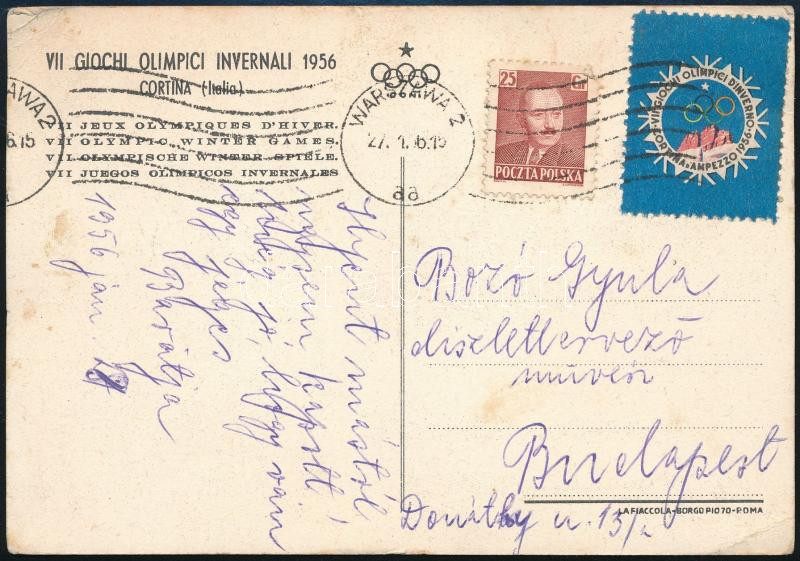 VII GIOCHI OLIMPICI INVERNALI 1956
CORTINA (Italia)
VII JEUX OLYMPIQUES D'HIVER
VII OLYMPIC WINTER GAMES.
VII OLYMPISCHE WINTER SPIELE.
VII JUEGOS OLIMPICOS INVERNALES
AWA 2
6.15
WARSZAWA 2
27. 1. 56.15
aa
25 Gr
POCZTA POLSKA
VII GIOCHI OLIMPICI D'INVERNO
CORTINA-AMPEZZO 1956
Ilyent mástól
nem kapott!
jó, hogy van
egy jeges
Barátja
1956 jan.
Bozó Gyula
diszlettervező
művész
Budapest
Donáthy u. 13/
LA FIACCOLA-BORGO PIO 70-ROMA